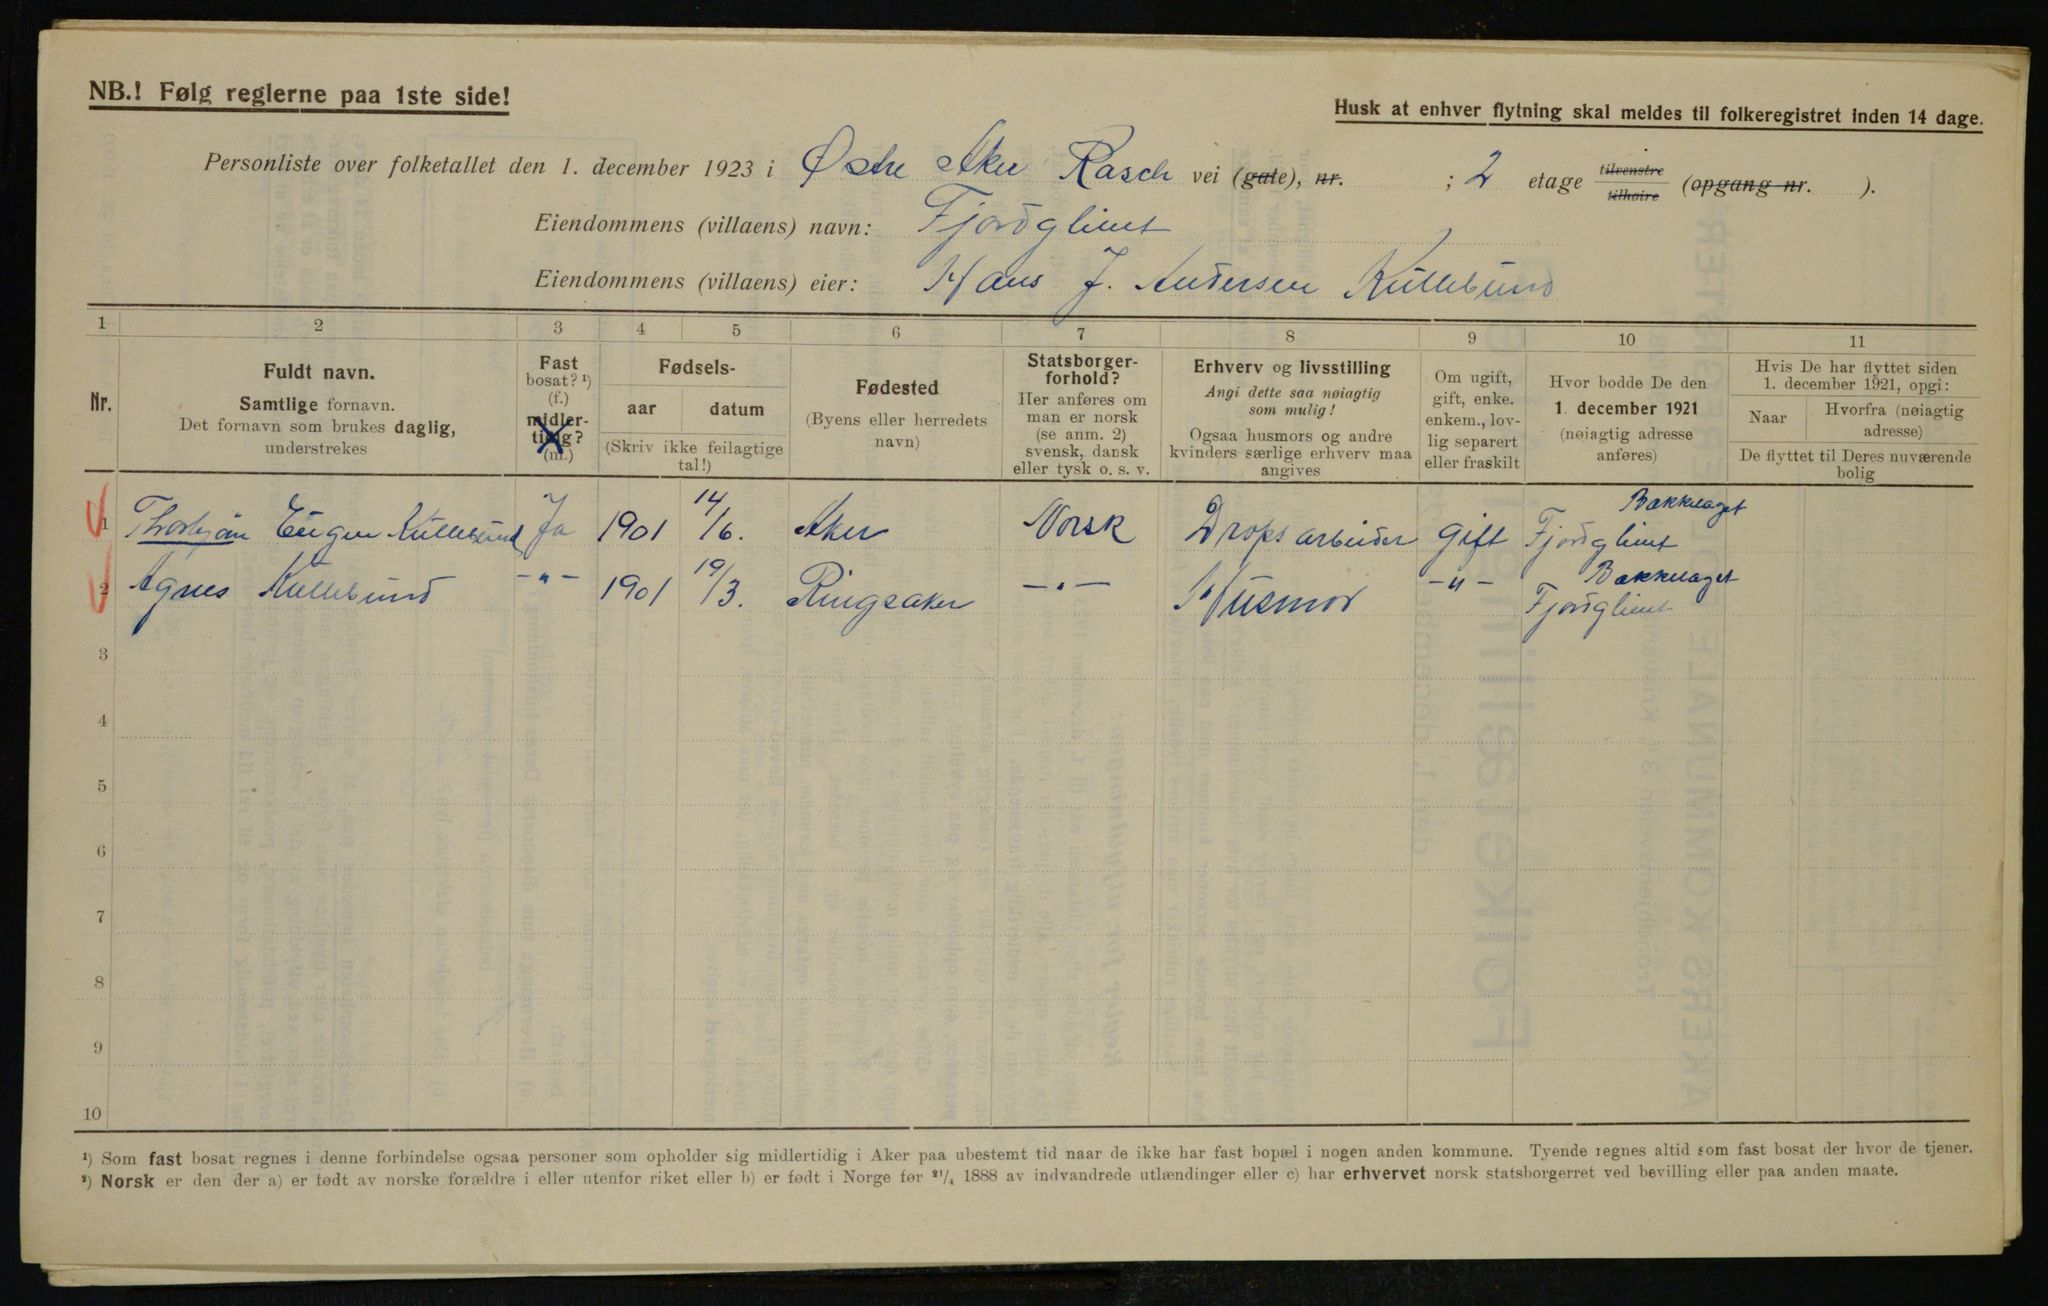 NB.! Følg reglerne paa 1ste side!
Husk at enhver flytning skal meldes til folkeregistret inden 14 dage.
Personliste over folketallet den 1. december 1923 i Østre Aker Rasch vei (gate), nr. ; 2 etage tilvenstre tilhøire (opgang nr. ).
Eiendommens (villaens) navn: Fjordglimt
Eiendommens (villaens) eier: Hans J. Andersen Kullebund
1 2 3 4 5 6 7 8 9 10 11
Nr.
Fuldt navn.
Samtlige fornavn.
Det fornavn som brukes daglig,
understrekes
Fast
bosat? ¹)
(f.)
midler-
tidig?
(m.)
Fødsels-
aar datum
(Skriv ikke feilagtige
tal!)
Fødested
(Byens eller herredets
navn)
Statsborger-
forhold?
Her anføres om
man er norsk
(se anm. 2)
svensk, dansk
eller tysk o. s. v.
Erhverv og livsstilling
Angi dette saa nøiagtig
som mulig!
Ogsaa husmors og andre
kvinders særlige erhverv maa
angives
Om ugift,
gift, enke.
enkem., lov-
lig separert
eller fraskilt
Hvor bodde De den
1. december 1921
(nøiagtig adresse
anføres)
Hvis De har flyttet siden
1. december 1921, opgi:
Naar Hvorfra (nøiagtig
adresse)
De flyttet til Deres nuværende
bolig
1 Thorbjøn Eugen Kullebund Ja 1901 14/6. Aker Norsk Dropsarbeider Gift Bækkelaget
Fjordglimt
2 Agnes Kullebund -"- 1901 19/3. Ringsaker -"- Husmor -"- Bækkelaget
Fjordglimt
3
4
5
6
7
8
9
10
¹) Som fast bosat regnes i denne forbindelse ogsaa personer som opholder sig midlertidig i Aker paa ubestemt tid naar de ikke har fast bopæl i nogen anden kommune. Tyende regnes altid som fast bosat der hvor de tjener.
²) Norsk er den der a) er født av norske forældre i eller utenfor riket eller b) er født i Norge før ²¹/₄ 1888 av indvandrede utlændinger eller c) har erhvervet norsk statsborgerret ved bevilling eller paa anden maate.